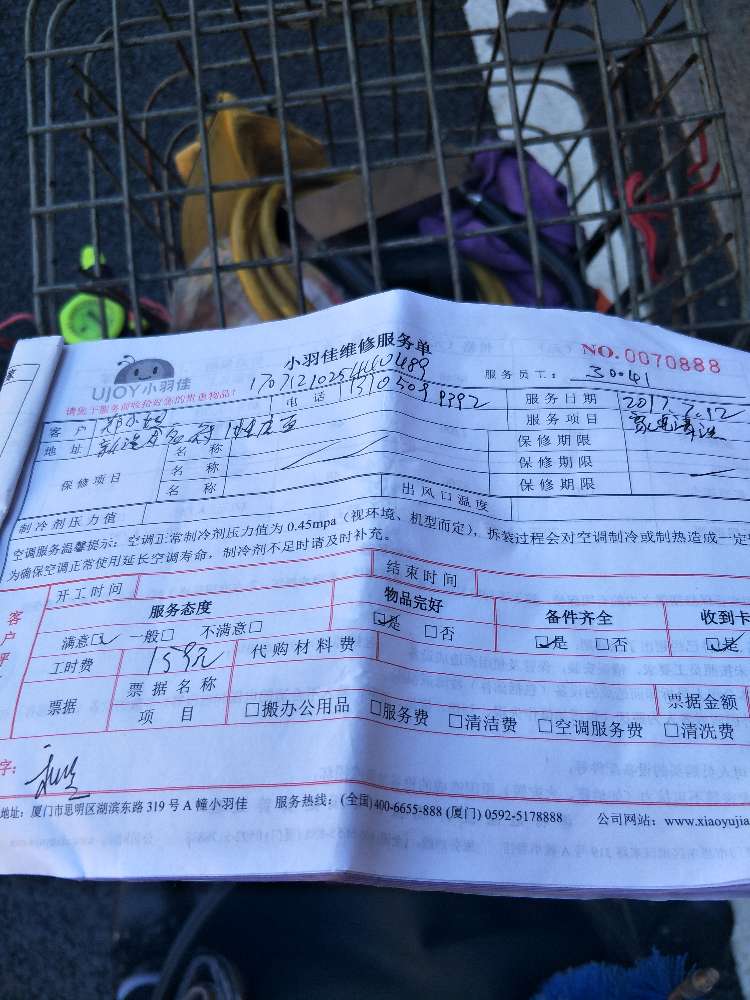 小羽佳维修服务单
NO.0070888
UJOY小羽佳
请您于服务前收拾好您的贵重物品！
服务员工： 30041
客户
电话
服务日期 2017.7.12
地址
服务项目 家电清洗
保修项目
名称
保修期限
名称
保修期限
名称
保修期限
制冷剂压力值
出风口温度
空调服务温馨提示：空调正常制冷剂压力值为0.45mpa（视环境、机型而定），拆装过程会对空调制冷或制热造成一定
为确保空调正常使用延长空调寿命，制冷剂不足时请及时补充。
开工时间
结束时间
客户
服务态度
物品完好
备件齐全
收到卡
满意☑ 一般□ 不满意□
☑是 □否
☑是 □否
☑是
工时费 159元
代购材料费
票据
票据名称
票据金额
项目
□搬办公用品 □服务费 □清洁费 □空调服务费 □清洗费
字：
地址：厦门市思明区湖滨东路319号A幢小羽佳 服务热线：(全国)400-6655-888 (厦门) 0592-5178888 公司网站：www.xiaoyujia